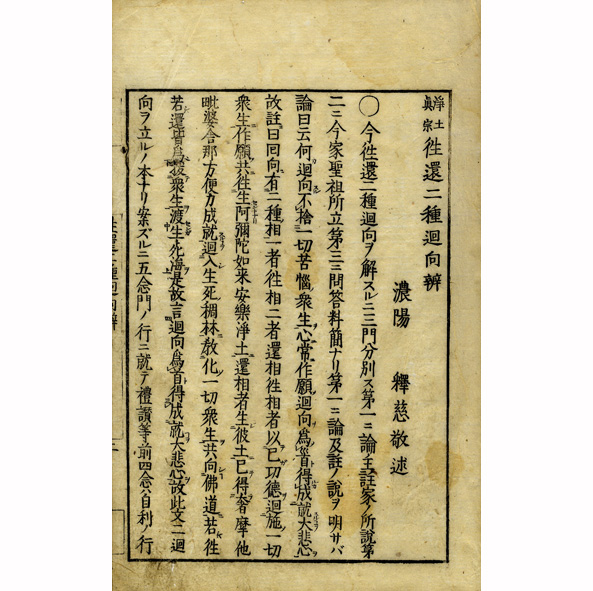 浄土真宗 徃還二種迴向辨
濃陽 釋慈敬述
〇今徃還二種迴向ヲ解スルニ三門分別ス第一ニ論主註家ノ所説第
二ニ今家聖祖所立第三ニ問答料簡ナリ第一ニ論及註ノ説ヲ明サバ
論曰云何迴向不捨一切苦惱衆生心常作願迴向爲首得成就大悲心
故註曰囘向有二種相一者徃相二者還相徃相者以已功德迴施一切
衆生作願共徃生阿彌陀如来安樂淨土還相者生彼土已得奢摩他
毗婆舎那方便力成就迴入生死稠林教化一切衆生共向佛道若徃
若還皆爲拔衆生渡生死海是故言迴向爲首得成就大悲心故此文ニ迴
向ヲ立ルノ本ナリ案ズルニ五念門ノ行ニ就テ禮讃等ノ前四念ハ自利ノ行